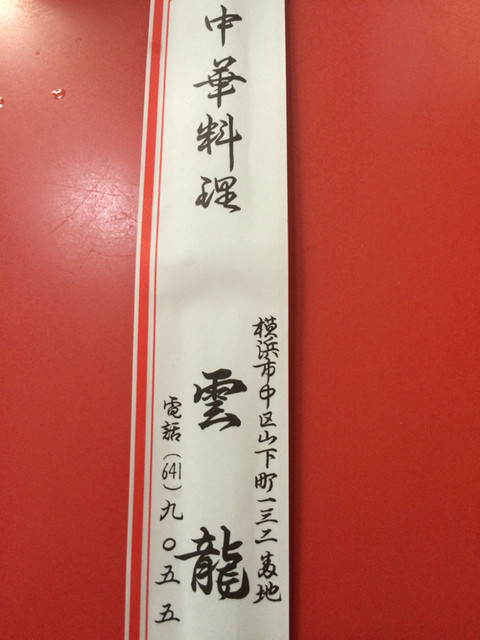 横浜市中区山下町一三二番地
中華料理 雲龍
電話(641)九〇五五